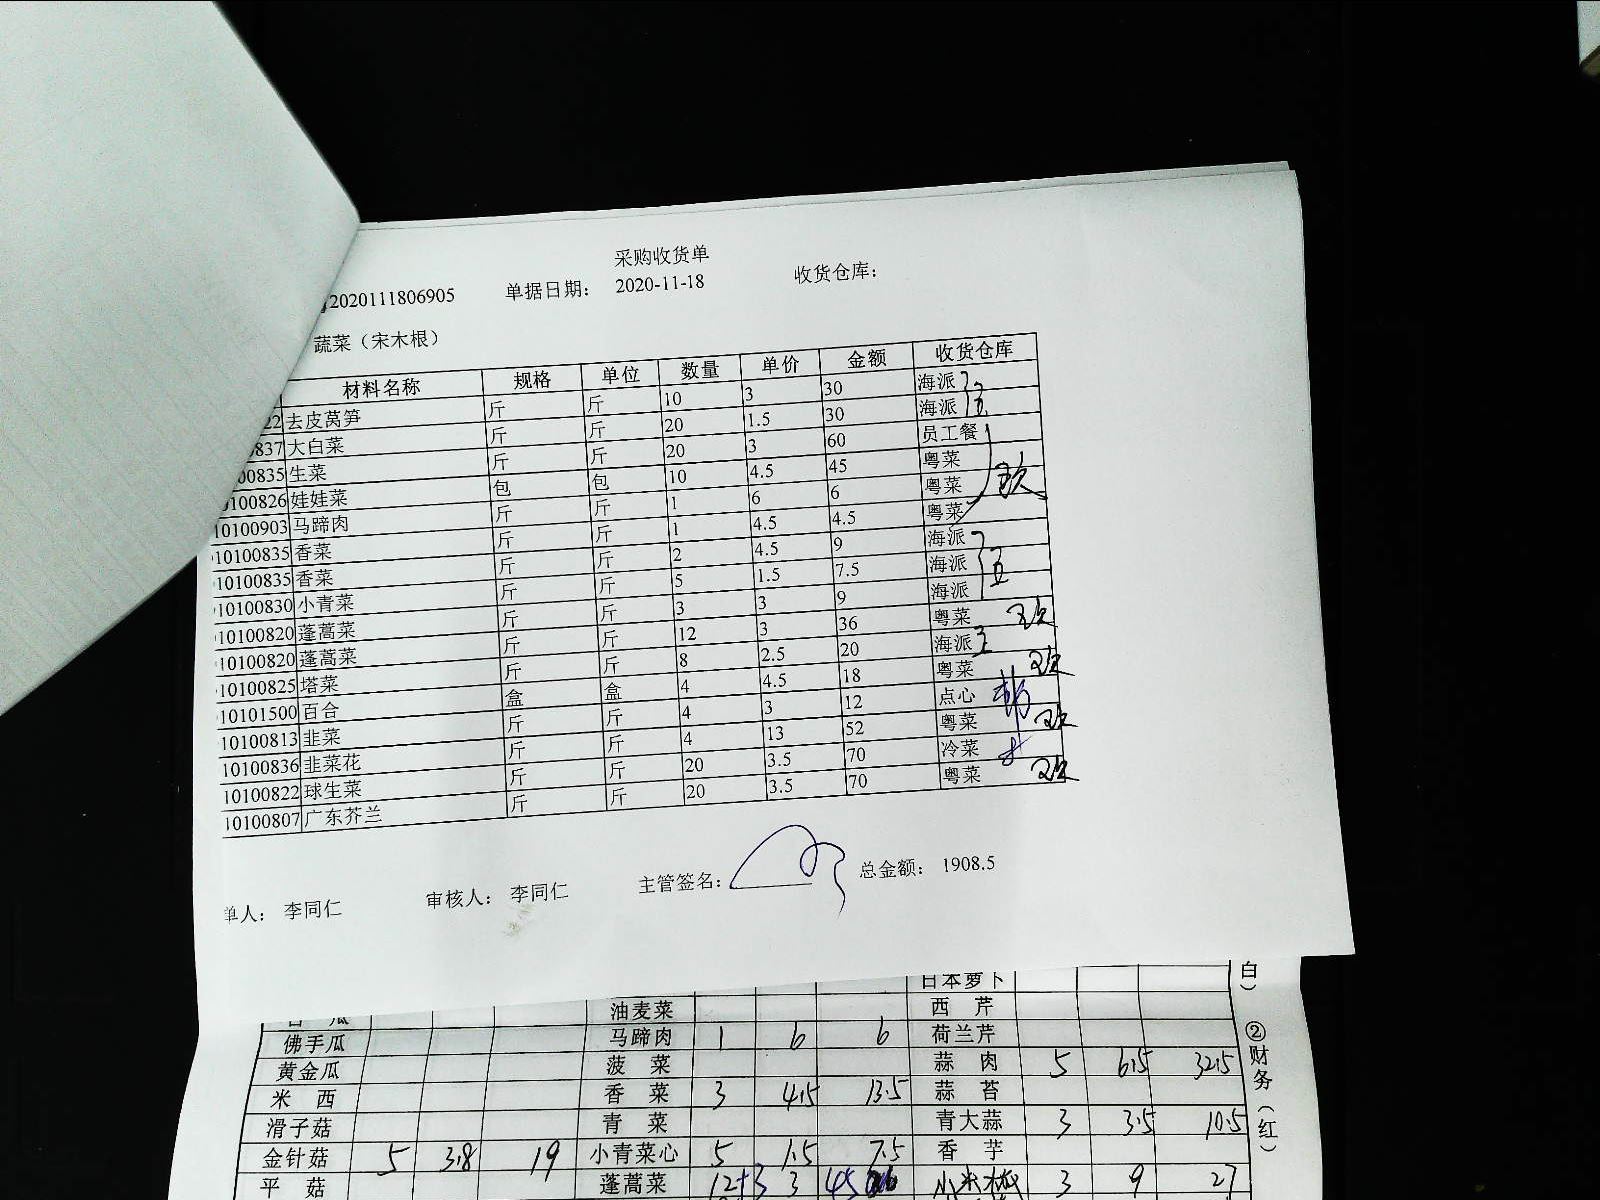 采购收货单
2020111806905 单据日期： 2020-11-18 收货仓库：
蔬菜（宋木根）
材料名称 规格 单位 数量 单价 金额 收货仓库
22 去皮莴笋 斤 斤 10 3 30 海派
837 大白菜 斤 斤 20 1.5 30 海派
00835 生菜 斤 斤 20 3 60 员工餐
0100826 娃娃菜 包 包 10 4.5 45 粤菜
10100903 马蹄肉 斤 斤 1 6 6 粤菜
10100835 香菜 斤 斤 1 4.5 4.5 粤菜
10100835 香菜 斤 斤 2 4.5 9 海派
10100830 小青菜 斤 斤 5 1.5 7.5 海派
10100820 蓬蒿菜 斤 斤 3 3 9 海派
10100820 蓬蒿菜 斤 斤 12 3 36 粤菜
10100825 塔菜 斤 斤 8 2.5 20 海派
10101500 百合 盒 盒 4 4.5 18 粤菜
10100813 韭菜 斤 斤 4 3 12 点心
10100836 韭菜花 斤 斤 4 13 52 粤菜
10100822 球生菜 斤 斤 20 3.5 70 冷菜
10100807 广东芥兰 斤 斤 20 3.5 70 粤菜
单人： 李同仁 审核人： 李同仁 主管签名： 总金额： 1908.5
日本萝卜
油麦菜 西芹
佛手瓜 马蹄肉 1 6 6 荷兰芹
黄金瓜 菠菜 蒜肉 5 6.5 32.5
米西 香菜 3 4.5 13.5 蒜苔
滑子菇 青菜 青大蒜 3 3.5 10.5
金针菇 5 3.8 19 小青菜心 5 1.5 7.5 香芋
平菇 蓬蒿菜 12+3 3 45 3 9 27
白）
②财务（红）